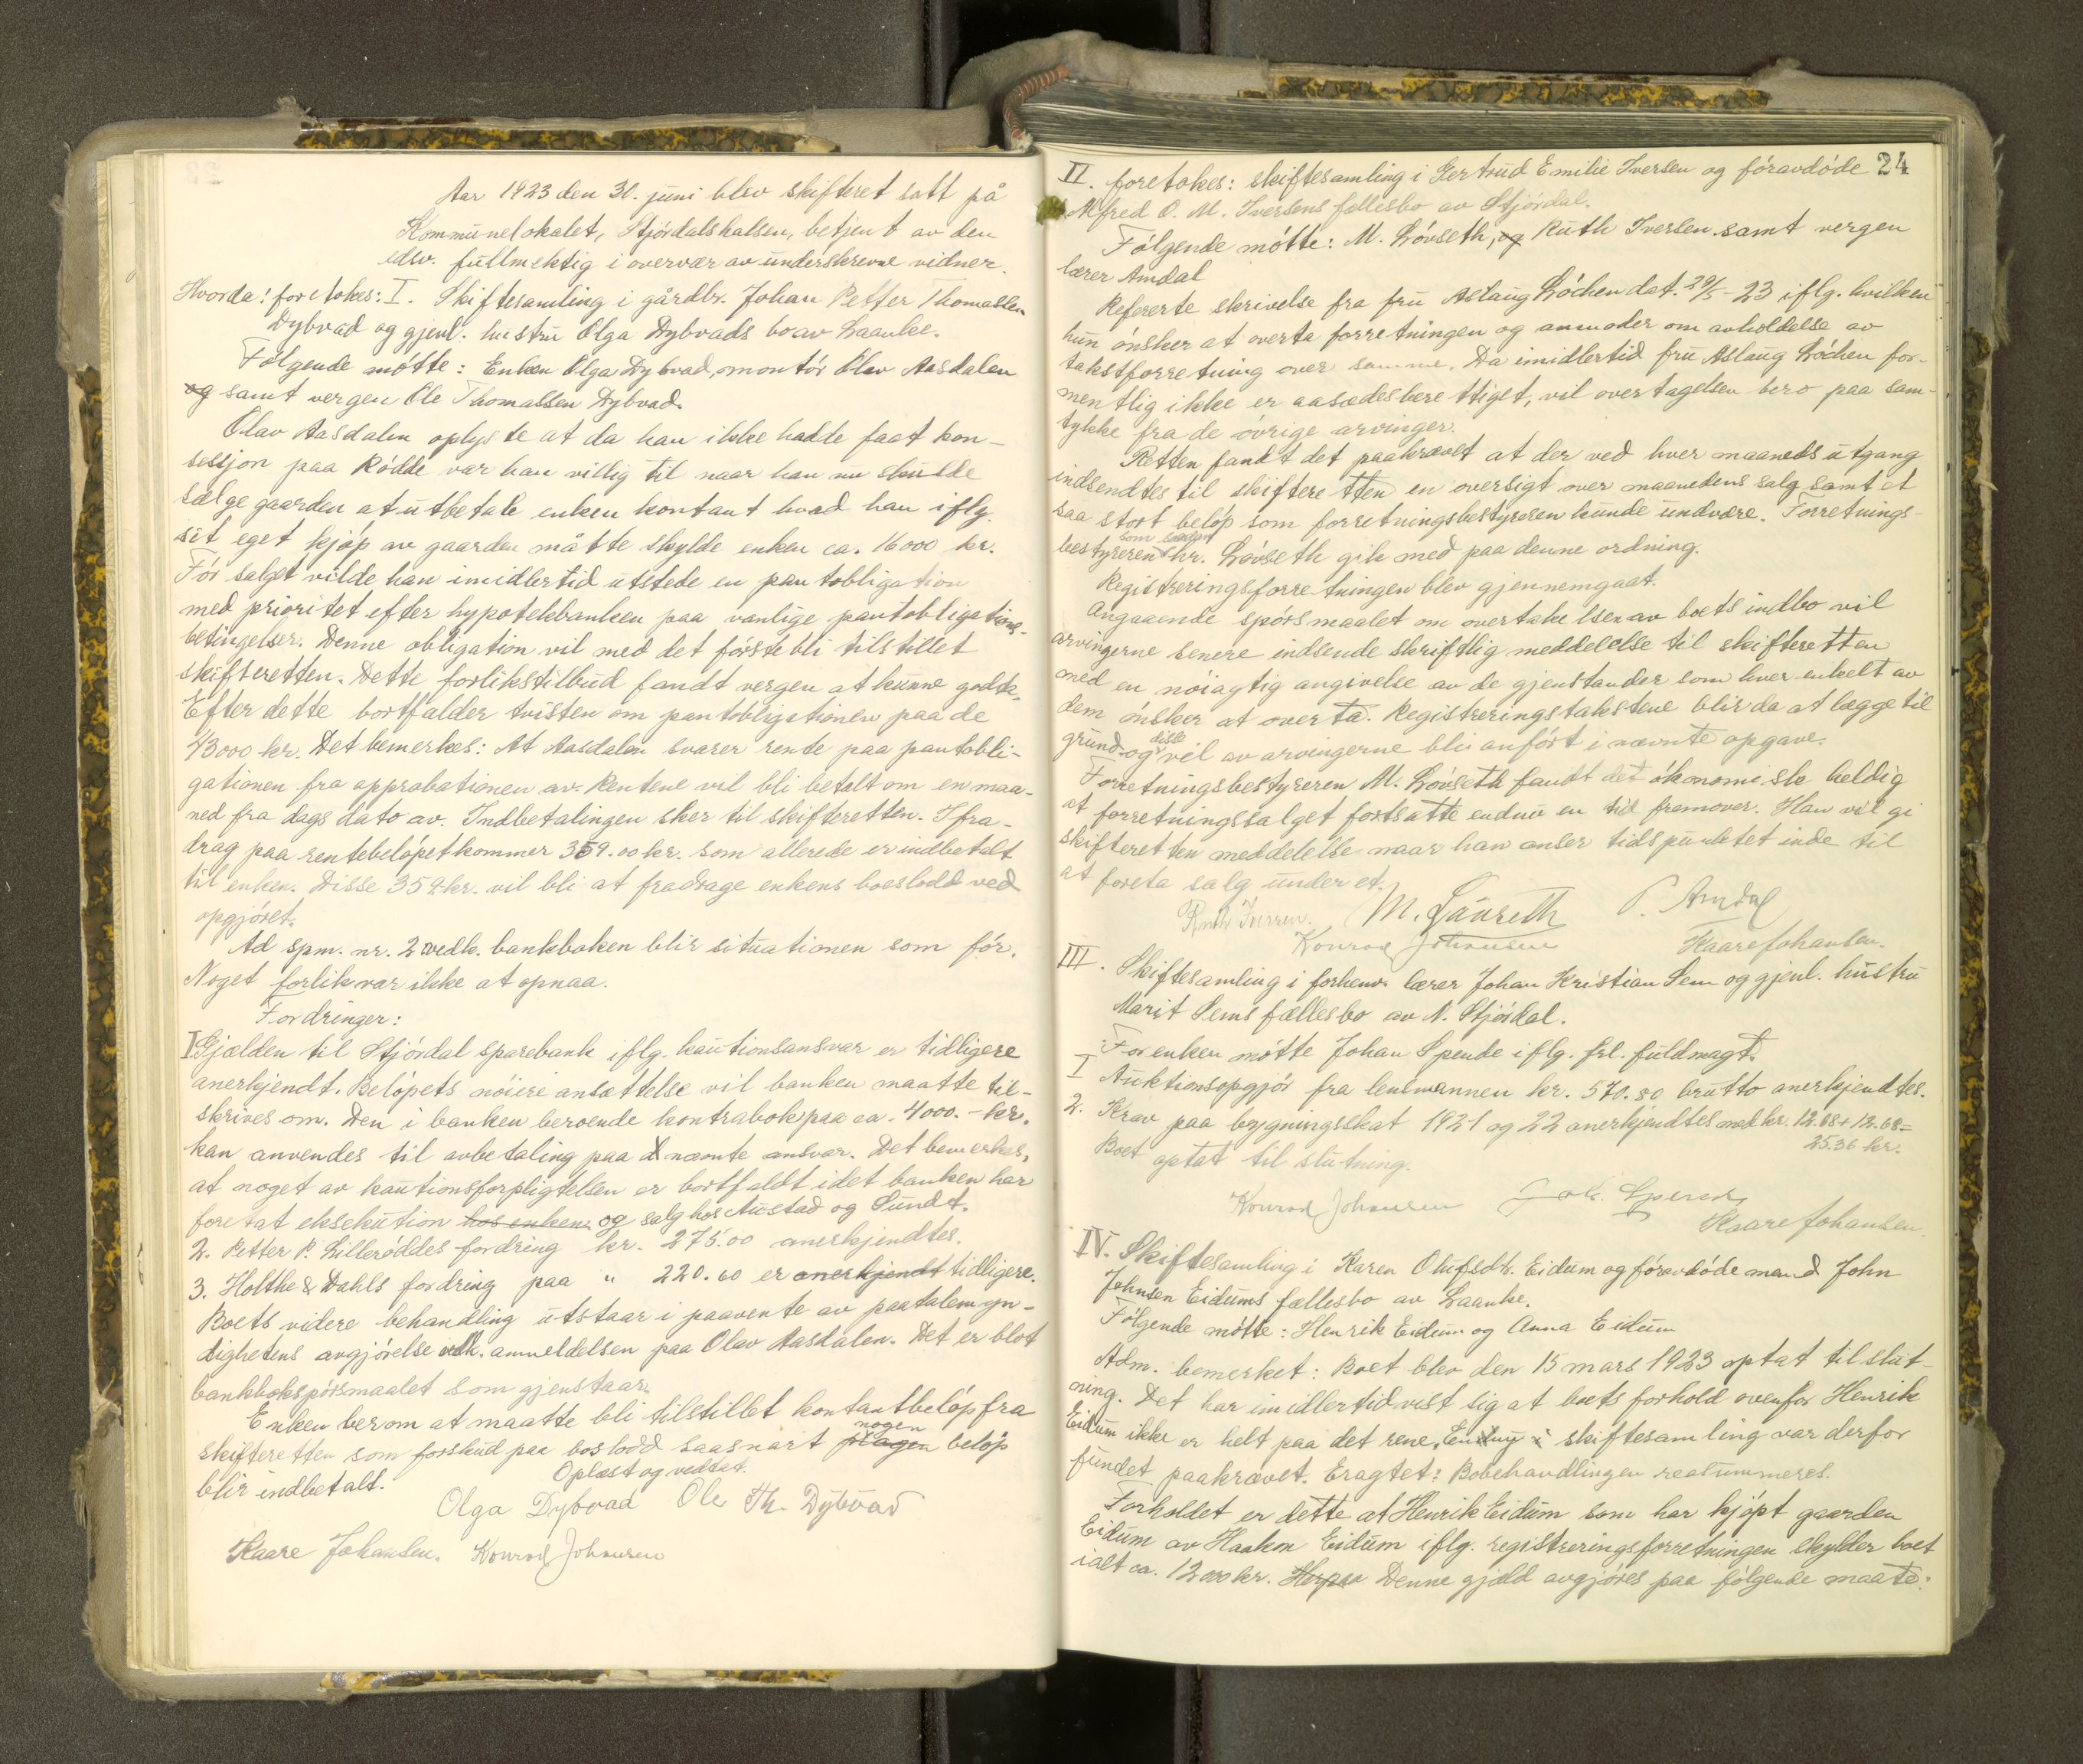 Aar 1923 den 30. juni blev skifteret satt på
Kommunelokalet, Stjórdalshalsen, betjent av den
edsv. fullmektig i overvær av underskrevne vidner.
Hvorda: foretokes: I. Skiftesamling i gårdbr. Johan Petter Thomassen
Dybvad og gjenl. hustru Olga Dybvads bo av Laanke.
Fólgende mótte: Enken Olga Dybvad, montór Olav Aasdalen
og samt vergen Ole Thomassen Dybvad.
Olav Aasdalen oplyste at da han ikke hadde faat kon-
sessjon paaRódde var han villig til naar han nu skulde
sælge gaarden at utbetale enken kontant hvad han iflg.
sit eget kjóp av gaarden måtte skylde enken ca. 16000 kr.
Fór salget vilde han imidlertid utstede en pantobligation
med prioritet efter hypotekbanken paa vanlige pantobligations-
betingelser. Denne obligation vil med det fórste bli tilstillet
skifteretten. Dette forlikstilbud fandt vergen at kunne godta.
Efter dette bortfalder tvisten om pantobligationen paa de
13000 kr. Det bemerkes: At Aasdalen svarer rente paa pantobli-
gationen fra approbationen av. Rentene vil bli betalt om en maa-
ned fra dags dato av. Indbetalingen sker til skifteretten. I fra-
drag paa rentebelópet kommer 359.00 kr. som allerede er indbetalt
til enken. Disse 359.-kr. vil bli at fradrage enkens boeslodd ved
opgjóret.
Ad spm. nr. 2 vedk. bankboken blir situationen som fór.
Noget forlik var ikke at opnaa.
Fordringer:
I Gjælden til Stjórdal sparebank iflg. kautionsansvar er tidligere
anerkjendt. Belópets nóiere ansættelse vil banken maatte til-
skrives om. Den i banken beroende kontrabok paa ca. 4000.- kr.
kan anvendes til avbetaling paa nævnte ansvar. Det bemerkes,
at noget av kautionsforpligtelsen er bortfaldt idet banken har
foretat eksekution hos enken og salg hos Austad og Sundt.
2. Petter P. Lilleróddes fordring kr. 275.00 anerkjendtes.
3. Holthe & Dahls fordring paa " 220.60 er anerkjendt tidligere.
Boets videre behandling utstaar i paavente av paatalemyn-
dighetens avgjórelse vedk. anmeldelsen paa Olav Aasdalen. Det er blot
bankbokspórsmaalet som gjenstaar.
Enken ber om at maatte bli tilstillet kontantbelóp fra
nogen
skifteretten som forskud paa boslodd saasnart belóp
blir indbetalt.
Oplæst og vedtat.
Olga Dybvad Ole Th. Dybvad
Kaare Johansen. Konrad Johansen
24
II. foretokes: skiftesamling i Gertrud Emilie Iversen og fóravdóde
Alfred O. M. Iversens fællesbo av Stjórdal.
Fólgende mótte: M. Lóvseth, og Ruth Iversen samt vergen
lærer Amdal
Refererte skrivelse fra fru Aslaug Lóchen dat. 29/5-23 iflg. hvilken
hun ónsker at overta forretningen og anmoder om avholdelse av
takstforretning over samme. Da imidlertid fru Aslaug Lóchen for-
mentlig ikke er aasædesberettiget, vil overtagelsen bero paa sam-
tykke fra de óvrige arvinger.
Retten fandt det paakrævet at der ved hver maaneds utgang
indsendtes til skifteretten en oversigt over maanedens salg samt et
saa stort belóp som forretningsbestyreren kunde undvære. Forretnings-
som saadan
bestyreren hr. Lóvseth gik med paa denne ordning.
Registreringsforretningen blev gjennemgaat.
Angaaende spórsmaalet om overtakelsen av boets indbo vil
arvingerne senere indsende skriftlig meddelelse til skifteretten
med en nóiagtig angivelse av de gjenstander som hver enkelt av
dem ónsker at overta. Registreringstakstene blir da at lægge til
disse
grund og vil av arvingerne bli anfórt i nævnte opgave.
Forretningsbestyreren M. Lóvseth fandt det ókonomiske heldig
at forretningssalget fortsatte endnu en tid fremover. Han vil gi
skifteretten meddelelse naar han anser tidspunktet inde til
at foreta salg under et.
Ruth Iversen. M. Lóvseth P. Amdal
Konrad Johansen Kaare Johansen.
III. Skiftesamling i forhenv. lærer Johan Kristian Sem og gjenl. hustru
Marit Sems fællesbo av N. Stjórdal.
For enken mótte Johan Spende iflg. frl. fuldmagt.
I Auktionsopgjór fra lensmannen kr. 570.80 brutto anerkjendtes.
2. Krav paa bygningsskat 1921 og 22 anerkjendtes med kr. 12.68 + 12.68 =
25.36 kr.
Boet optat til slutning.
Konrad Johansen Joh. Spende
Kaare Johansen.
IV. Skiftesamling i Karen Olufsdtr. Eidum og fóravdóde mand John
Johnsen Eidums fællesbo av Laanke.
Fólgende mótte: Henrik Eidum og Anna Eidum
Adm. bemerket: Boet blev den 15 mars 1923 optat til slut-
ning. Det har imidlertid vist sig at boets forhold ovenfor Henrik
Eidum ikke er helt paa det rene. skiftesamling var derfor
fundet paakrævet. Eragtet: Bobehandlingen reasummeres.
Forholdet er dette at Henrik Eidum som har kjópt gaarden
Eidum av Haakon Eidum iflg. registreringsforretningen skylder boet
ialt ca. 12000 kr. Denne gjæld avgjóres paa fólgende maate: